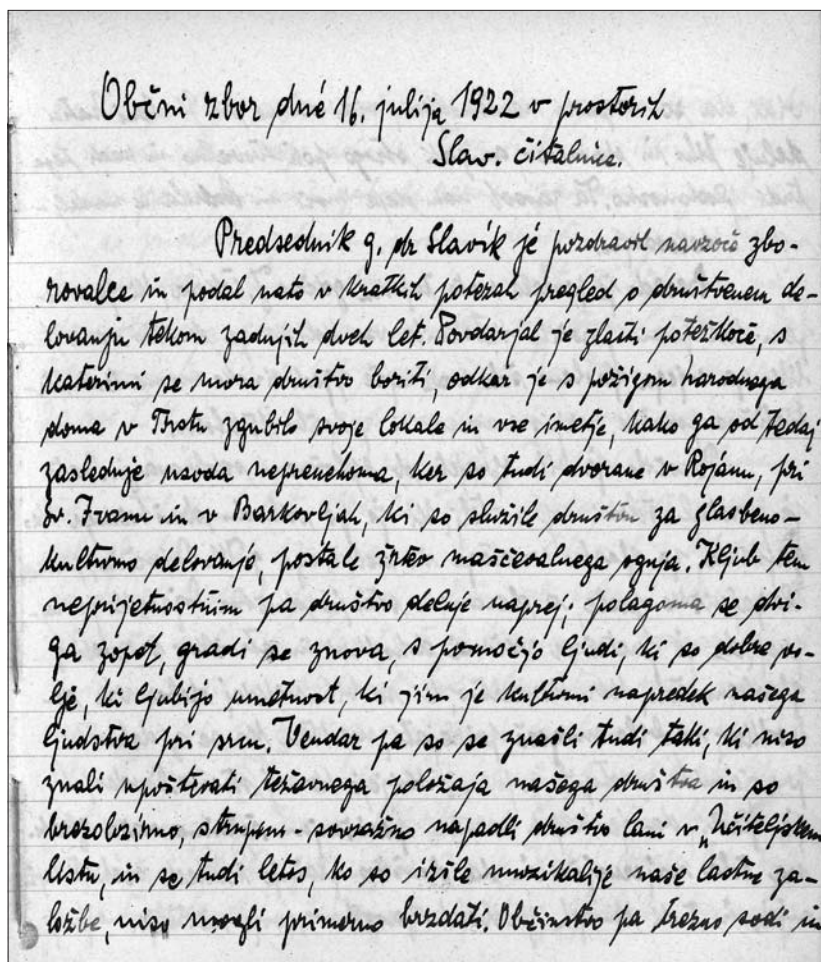 Občni zbor dné 16. julija 1922 v prostorih
Slav. čitalnice.
Predsednik g. dr Slavik je pozdravil navzoče zbo-
rovalce in podal nato v kratkih potezah pregled o društvenem de-
lovanju tekom zadnjih dveh let. Povdarjal je zlasti potežkoče, s
katerimi se mora društvo boriti, odkar je s požigom narodnega
doma v Trstu zgubilo svoje lokale in vse imetje, kako ga od tedaj
zasleduje usoda neprenehoma, ker so tudi dvorane v Rojanu, pri
Sv. Ivanu in v Barkovljah, ki so služile društvu za glasbeno-
kulturno delovanje, postale žrtev maščevalnega ognja. Kljub tem
neprijetnostim pa društvo deluje naprej; polagoma se dvi-
ga zopet, gradi se znova, s pomočjo ljudi, ki so dobre vo-
lje, ki ljubijo umetnost, ki jim je kulturni napredek našega
ljudstva pri srcu. Vendar pa so se znašli tudi taki, ki niso
znali upoštevati težavnega položaja našega društva in so
brezobzirno, strupeno-sovražno napadli društvo lani v „Učiteljskem
listu, in se tudi letos, ko so izšle muzikalije naše lastne za-
ložbe, niso mogli primerno brzdati. Občinstvo pa trezno sodi in